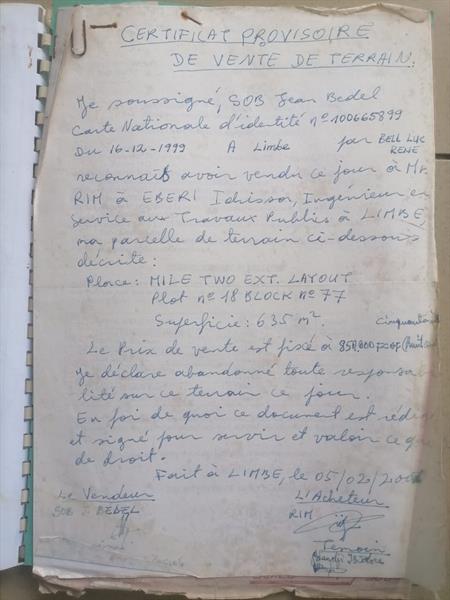 CERTIFICAT PROVISOIRE
DE VENTE DE TERRAIN.
Je soussigné, SOB Jean Bedel
Carte Nationale d'identité n° 100665899
Du 16-12-1999 A Limbe par BELL LUC
RENE
reconnait avoir vendu ce jour à Mr
RIM à EBERI Idrissou, Ingénieur en
Service aux Travaux Publics à LIMBE,
ma parcelle de terrain ci-dessous
décrite:
Place: MILE TWO EXT. LAYOUT
Plot n° 18 BLOCK n° 77
Superficie: 635 m².
Le Prix de vente est fixé à 850,000 FCFA
Je déclare abandonné toute responsa
lité sur ce terrain ce jour.
En foi de quoi ce document est rédigé
et signé pour servir et valoir ce que
de droit.
Fait à LIMBE, le 05/02/
Le Vendeur
L'Acheteur
SOB J. BEDEL
RIM
Temoin